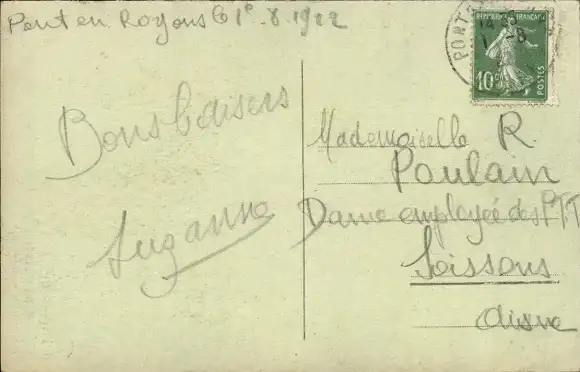 Pont en Royans le 1º. 8. 1922
Bons baisers
Suzanne
REPUBLIQUE FRANÇAISE
10c
POSTES
PONT
Mademoiselle R.
Poulain
Dame employée des P.T.T
Soissons
Aisne